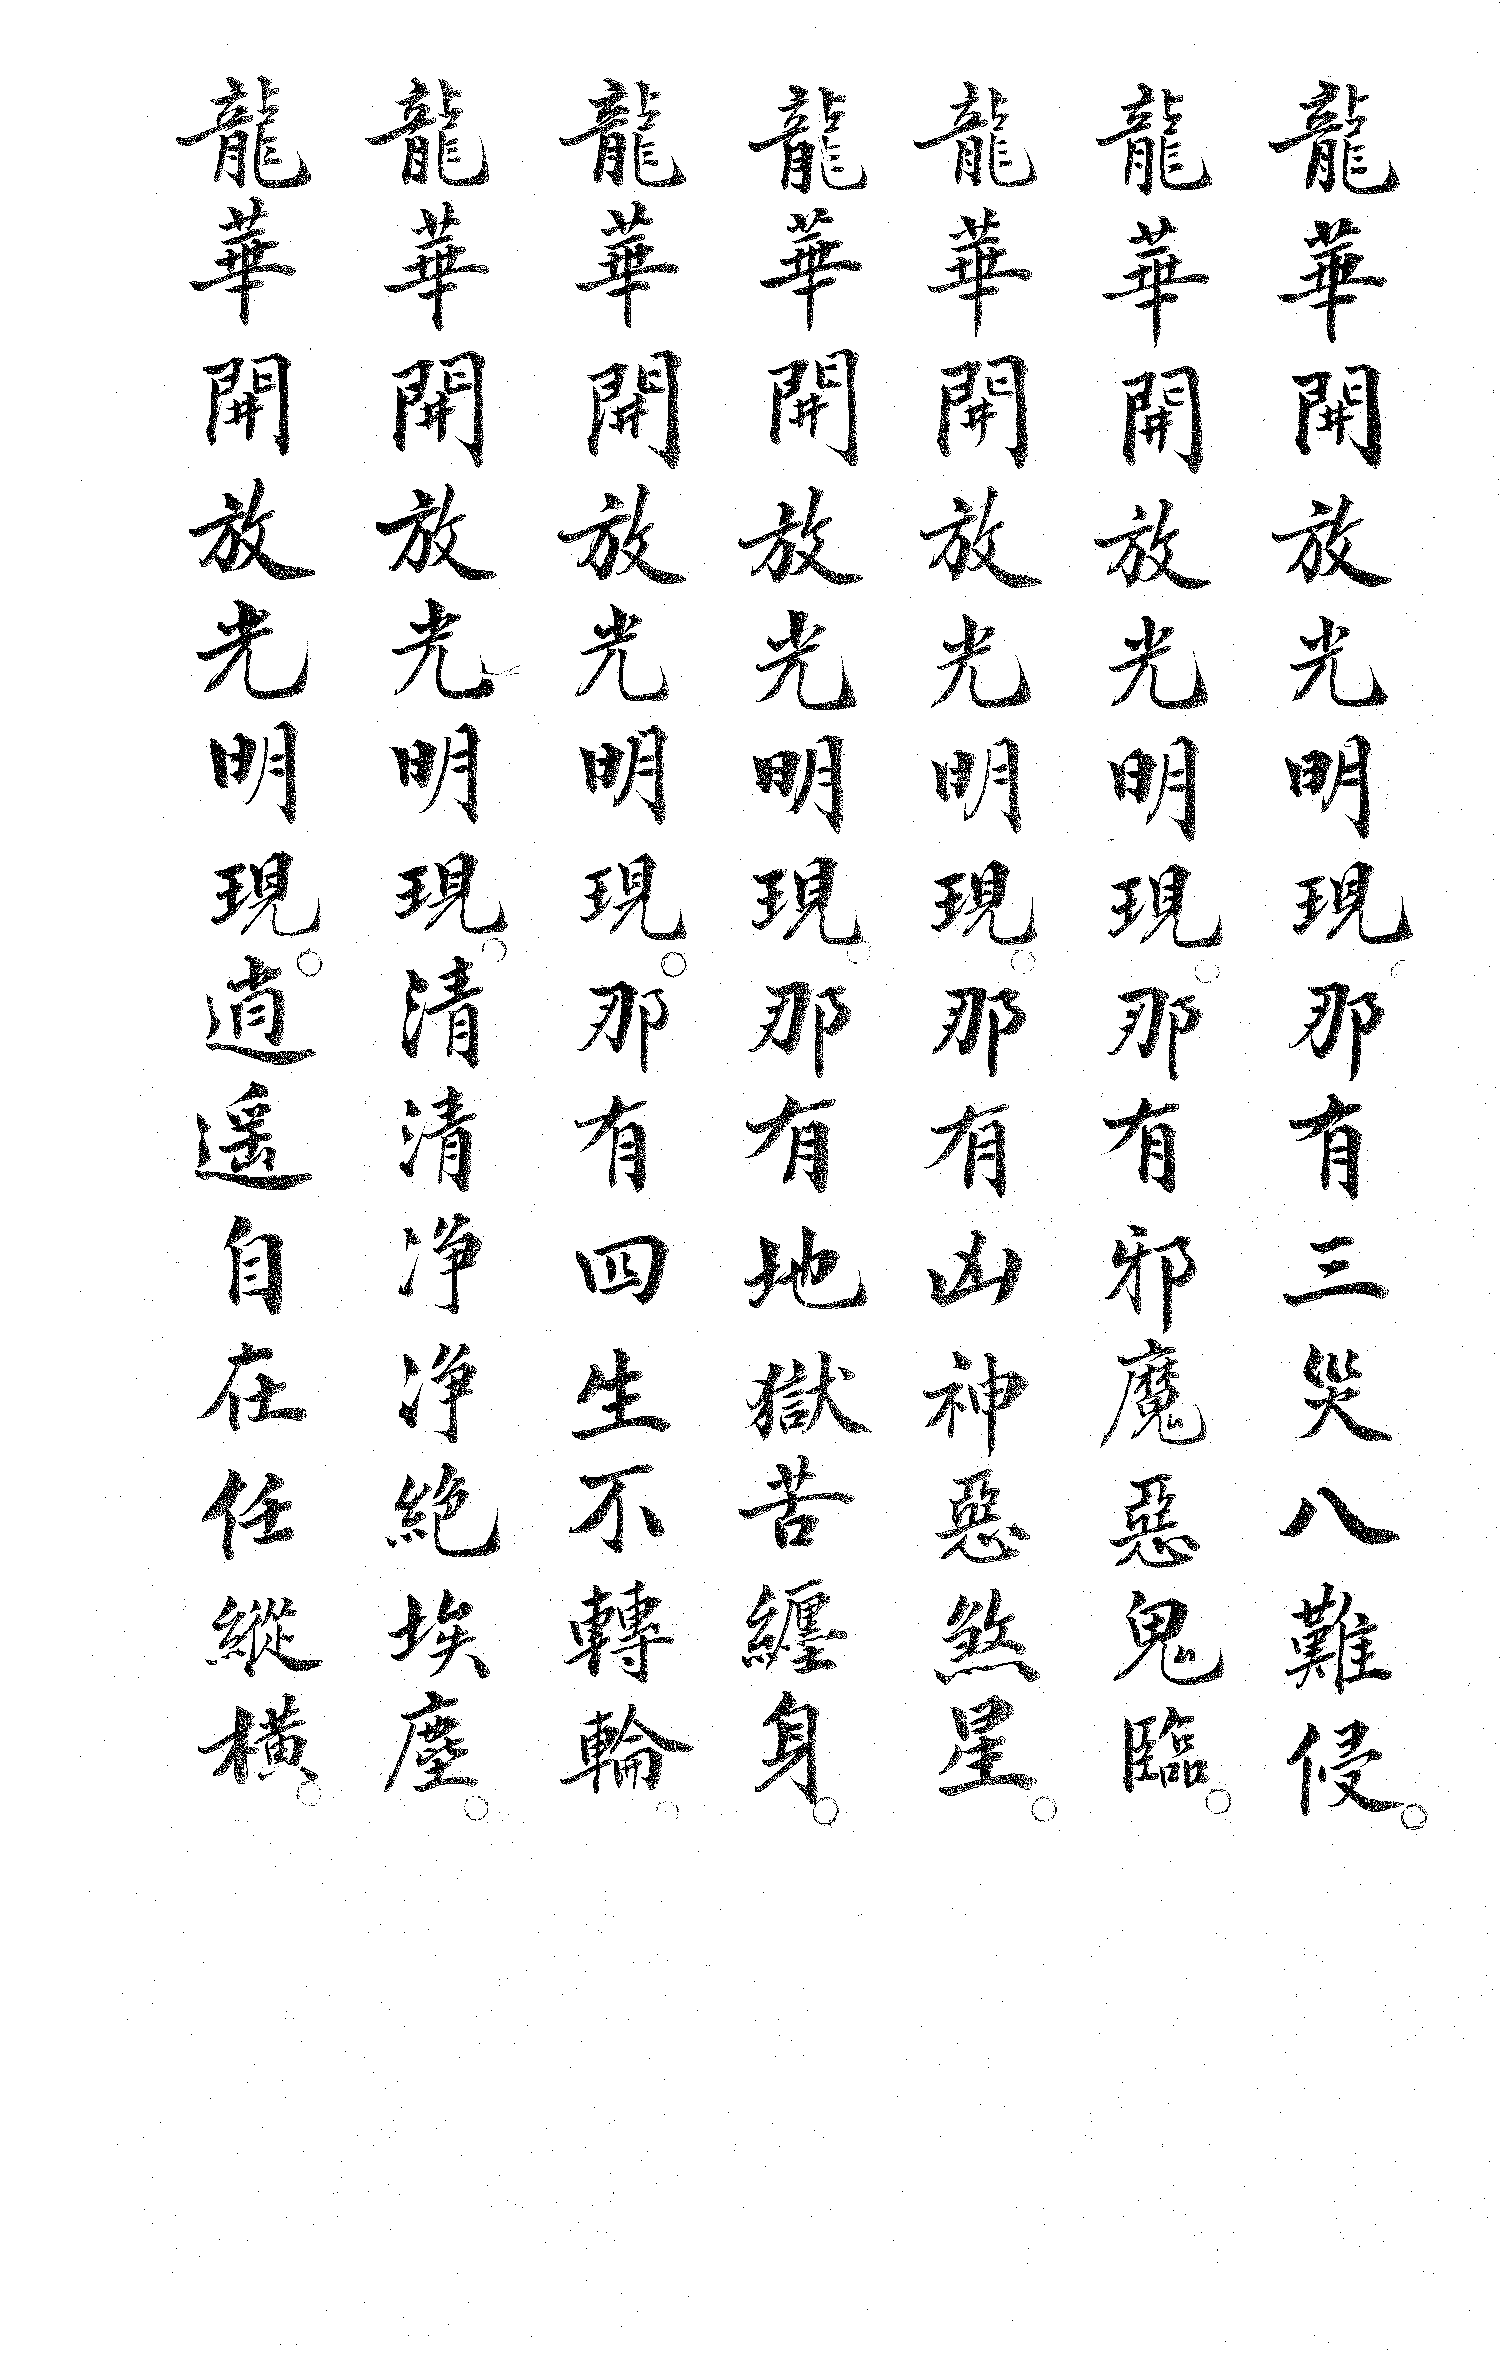 龍華開放光明現。那有三災八難侵。
龍華開放光明現。那有邪魔惡鬼臨。
龍華開放光明現。那有凶神惡煞星。
龍華開放光明現。那有地獄苦纏身。
龍華開放光明現。那有四生不轉輪。
龍華開放光明現。清清净净絕埃塵。
龍華開放光明現。逍遥自在任縱橫。